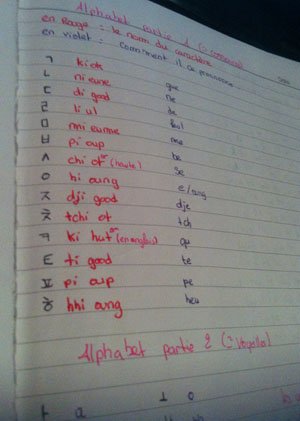 Alphabet partie 1 (consonnes)
en Rouge = le nom du caractère
en violet = comment il se prononce
ㄱ kiok que
ㄴ nieune ne
ㄷ di good de
ㄹ liul leul
ㅁ mi eurme me
ㅂ pi oup be
ㅅ chi ot (haute) se
ㅇ hi oung e/oung
ㅈ dji good dje
ㅊ tchi ot tch
ㅋ ki hut (en anglais) qu
ㅌ ti good te
ㅍ pi oup pe
ㅎ hhi oung heu
Alphabet partie 2 (= Voyelles)
ㅏ a ㅗ o